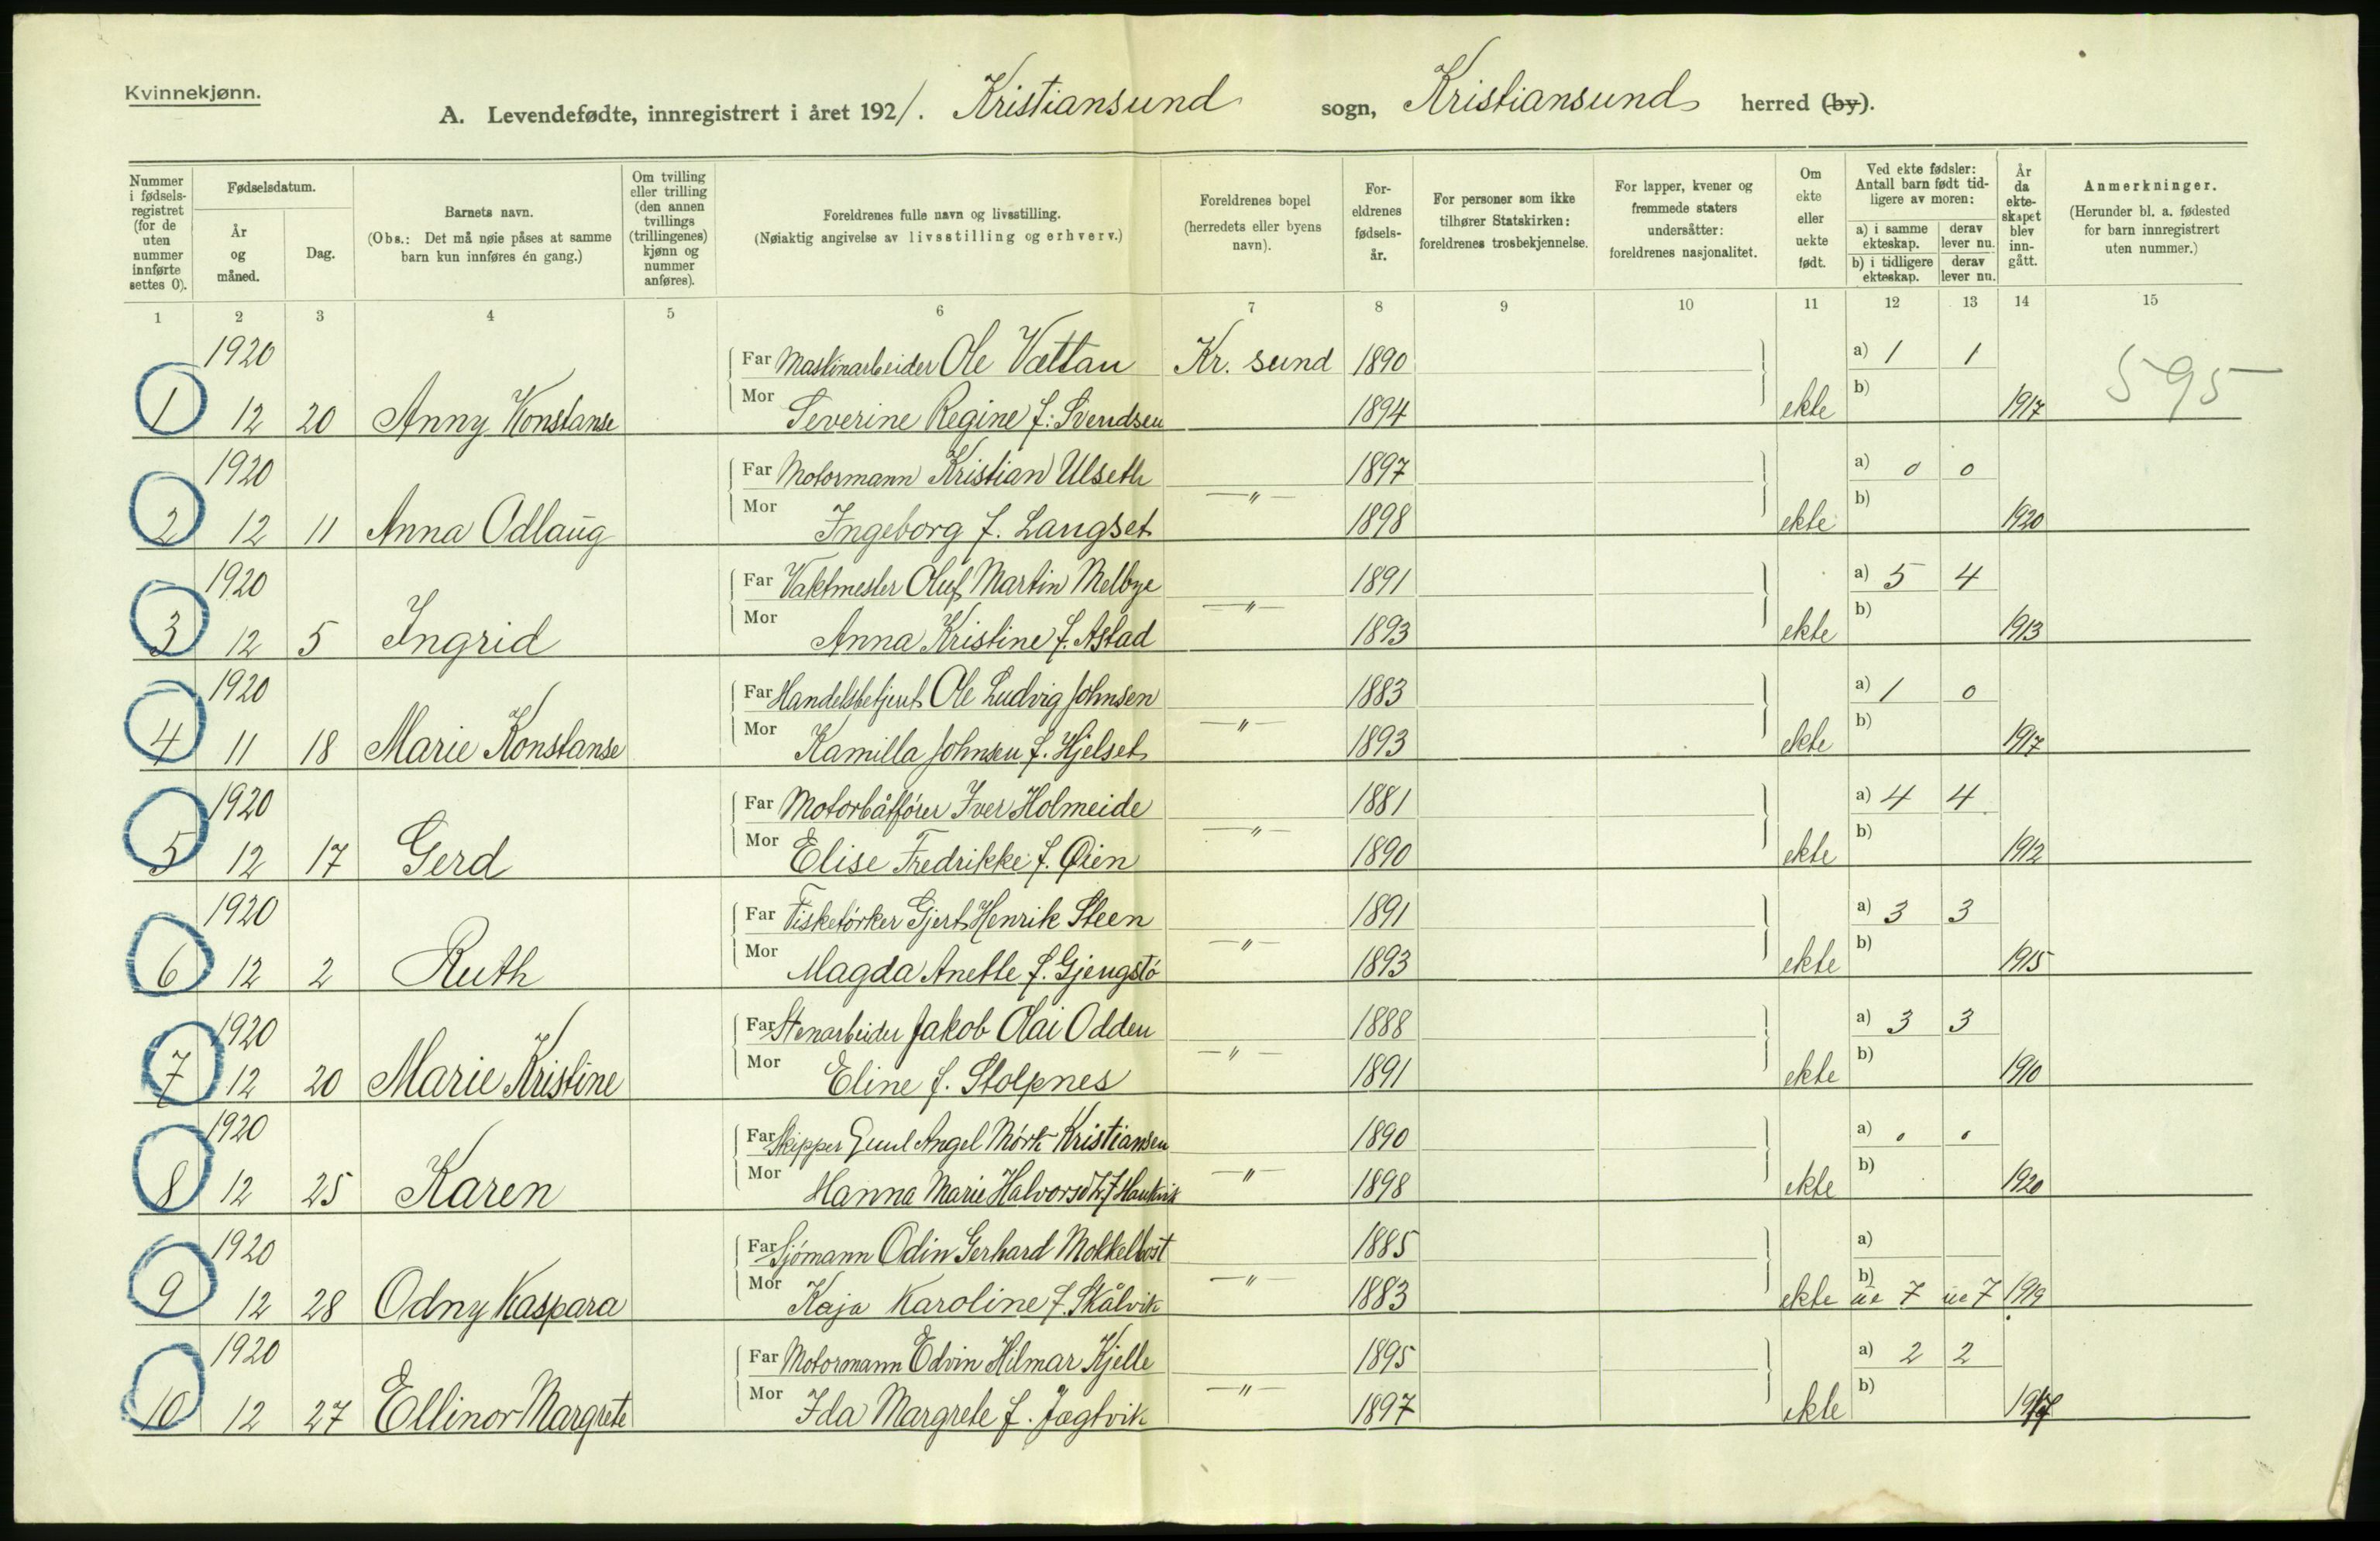 Kvinnekjønn.
A. Levendefødte, innregistrert i året 1921. Kristiansund sogn, Kristiansund herred (by).
Nummer i fødselsregistret (for de uten nummer innførte settes 0).
Fødselsdatum.
År og måned.
Dag.
Barnets navn.
(Obs.: Det må nøie påses at samme barn kun innføres én gang.)
Om tvilling eller trilling (den annen tvillings (trillingenes) kjønn og nummer anføres).
Foreldrenes fulle navn og livsstilling.
(Nøiaktig angivelse av livsstilling og erhverv.)
Foreldrenes bopel
(herredets eller byens navn).
Foreldrenes fødselsår.
For personer som ikke tilhører Statskirken: foreldrenes trosbekjennelse.
For lapper, kvener og fremmede staters undersåtter: foreldrenes nasjonalitet.
Om ekte eller uekte født.
Ved ekte fødsler: Antall barn født tidligere av moren:
a) i samme ekteskap. derav lever nu.
b) i tidligere ekteskap. derav lever nu.
År da ekteskapet blev inngått.
Anmerkninger.
(Herunder bl. a. fødested for barn innregistrert uten nummer.)
1 2 3 4 5 6 7 8 9 10 11 12 13 14 15
1920 Far Maskinarbeider Ole Vættan Kr. sund 1890 a) 1 1 595
1 12 20 Anny Konstanse Mor Severine Regine f. Svendsen 1894 ekte b) 1917
1920 Far Motormann Kristian Ulseth 1897 a) 0 0
2 12 11 Anna Odlaug Mor Ingeborg f. Langset —"— 1898 ekte b) 1920
1920 Far Vaktmester Oluf Martin Melbye 1891 a) 5 4
3 12 5 Ingrid Mor Anna Kristine f. Astad —"— 1893 ekte b) 1913
1920 Far Handelsbetjent Ole Ludvig Johnsen 1883 a) 1 0
4 11 18 Marie Konstanse Mor Kamilla Johnsen f. Hjelset —"— 1893 ekte b) 1917
1920 Far Motorbåtfører Iver Holmeide 1881 a) 4 4
5 12 17 Gerd Mor Elise Fredrikke f. Øien —"— 1890 ekte b) 1912
1920 Far Fisketørker Gjert Henrik Steen 1891 a) 3 3
6 12 2 Ruth Mor Magda Anette f. Gjengstö —"— 1893 ekte b) 1915
1920 Far Stenarbeider Jakob Olai Odden 1888 a) 3 3
7 12 20 Marie Kristine Mor Eline f. Stolpnes —"— 1891 ekte b) 1910
1920 Far Skipper Angel Mörk Kristiansen 1890 a) 0 0
8 12 25 Karen Mor Hanna Marie —"— 1898 ekte b) 1920
1920 Far Sjömann Odin Gerhard Mokkelbost 1885 a)
9 12 28 Odny Kaspara Mor Kaja Karoline f. Skålvik —"— 1883 ekte b) ue 7 ue 7 1919
1920 Far Motormann Edvin Hilmar Kjelle 1895 a) 2 2
10 12 27 Ellinor Margrete Mor Ida Margrete f. Jægtvik —"— 1897 ekte b)